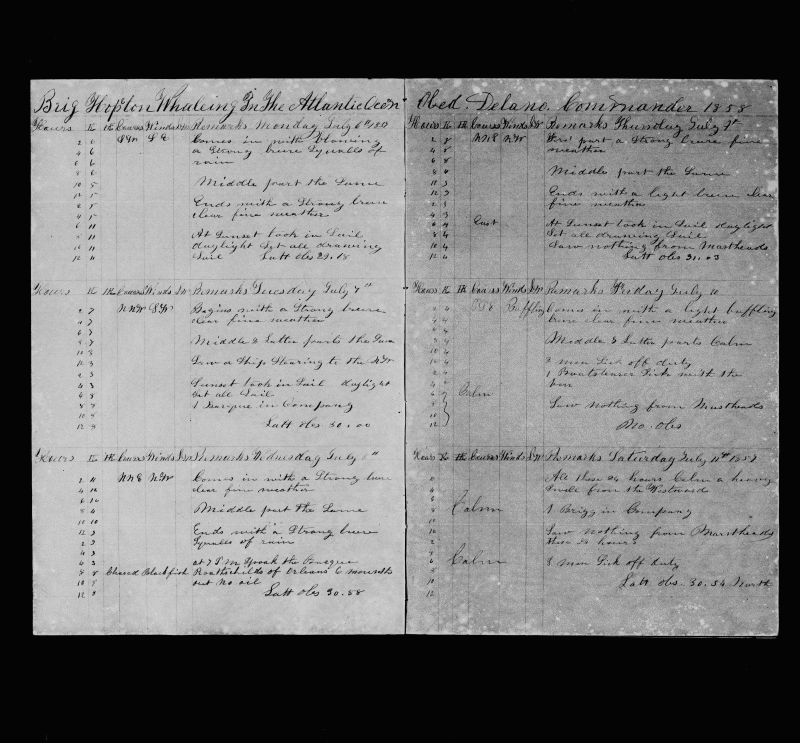 Brig Hopton Whaleing In The Atlantic Ocen
Hours K th Cours Winds Remarks Monday July 6th 185
2 6 SE Comes in with blowing
4 6 a Strong breeze Squalls of
6 6 rain
8 6
10 5 Middle part the Same
12 5
2 5 Ends with a Strong breeze
4 5 clear fine weather
6 11
8 11 At Sunset took in Sail
10 4 daylight Set all drawing
12 4 Sail Latt obs 29.18
Hours K th Cours Winds Remarks Tuesday July 7th
2 7 NNW Begins with a Strong breeze
4 7 clear fine weather
6 7
8 7 Middle & Latter parts the Same
10 8
12 3 Saw a Ship Stearing to the
2 3
4 3 Sunset took in Sail daylight
6 8 Set all Sail
8 8 1 Barque in Company
10 8
12 9 Latt obs 30.00
Hours K th Cours Winds Remarks Wednesday July 8th
2 11 NNE NW Comes in with a Strong breze
4 10 clear fine weather
6 10
8 4 Middle part the Same
10 10
12 3 Ends with a Strong breeze
2 3 Squalls of rain
4 3
6 3 at 7 P.M Spoak the Barque
8 8 Chased Blackfish Roathschilds of Orleans 6 mounths
10 8 out No oil
12 8 Latt obs 30.58
Obed. Delano. Commander 1858
Hours K th Cours Winds Remarks Thursday July 9th
2 8 NNE NW First part a Strong breeze fine
4 8 weather
6 8
8 8 Middle part the Same
10 3
12 3 Ends with a light breeze clear
2 3 fine weather
4 3
6 4 East At Sunset took in Sail daylight
8 4 Set all drawing Sail
10 4 Saw nothing from Mastheads
12 4 Latt obs 31.03
Hours K th Cours Winds Remarks Friday July 10
2 4 Baffling Comes in with a light baffling
4 4 breze clear fine weather
6 4
8 4 Middle & Latter parts Calm
10 4
12 4 2 men Sick off duty
2 4 1 Boatstearer Sick with the
4
6 Calm
8 Saw nothing from Mastheads
10
12 No. obs
Hours K th Cours Winds Remarks Saturday July 11th 1857
2 All these 24 hours Calm a heavy
4 Swell from the Westward
6
8 Calm 1 Brigg in Company
10
12 Saw nothing from Mastheads
2 these 24 hours
4
6 Calm 3 men Sick off duty
8
10 Latt obs 30.54 North
12